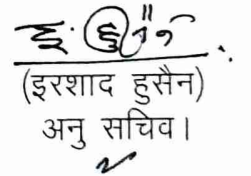 (इरशाद हुसैन)
अनु सचिव।